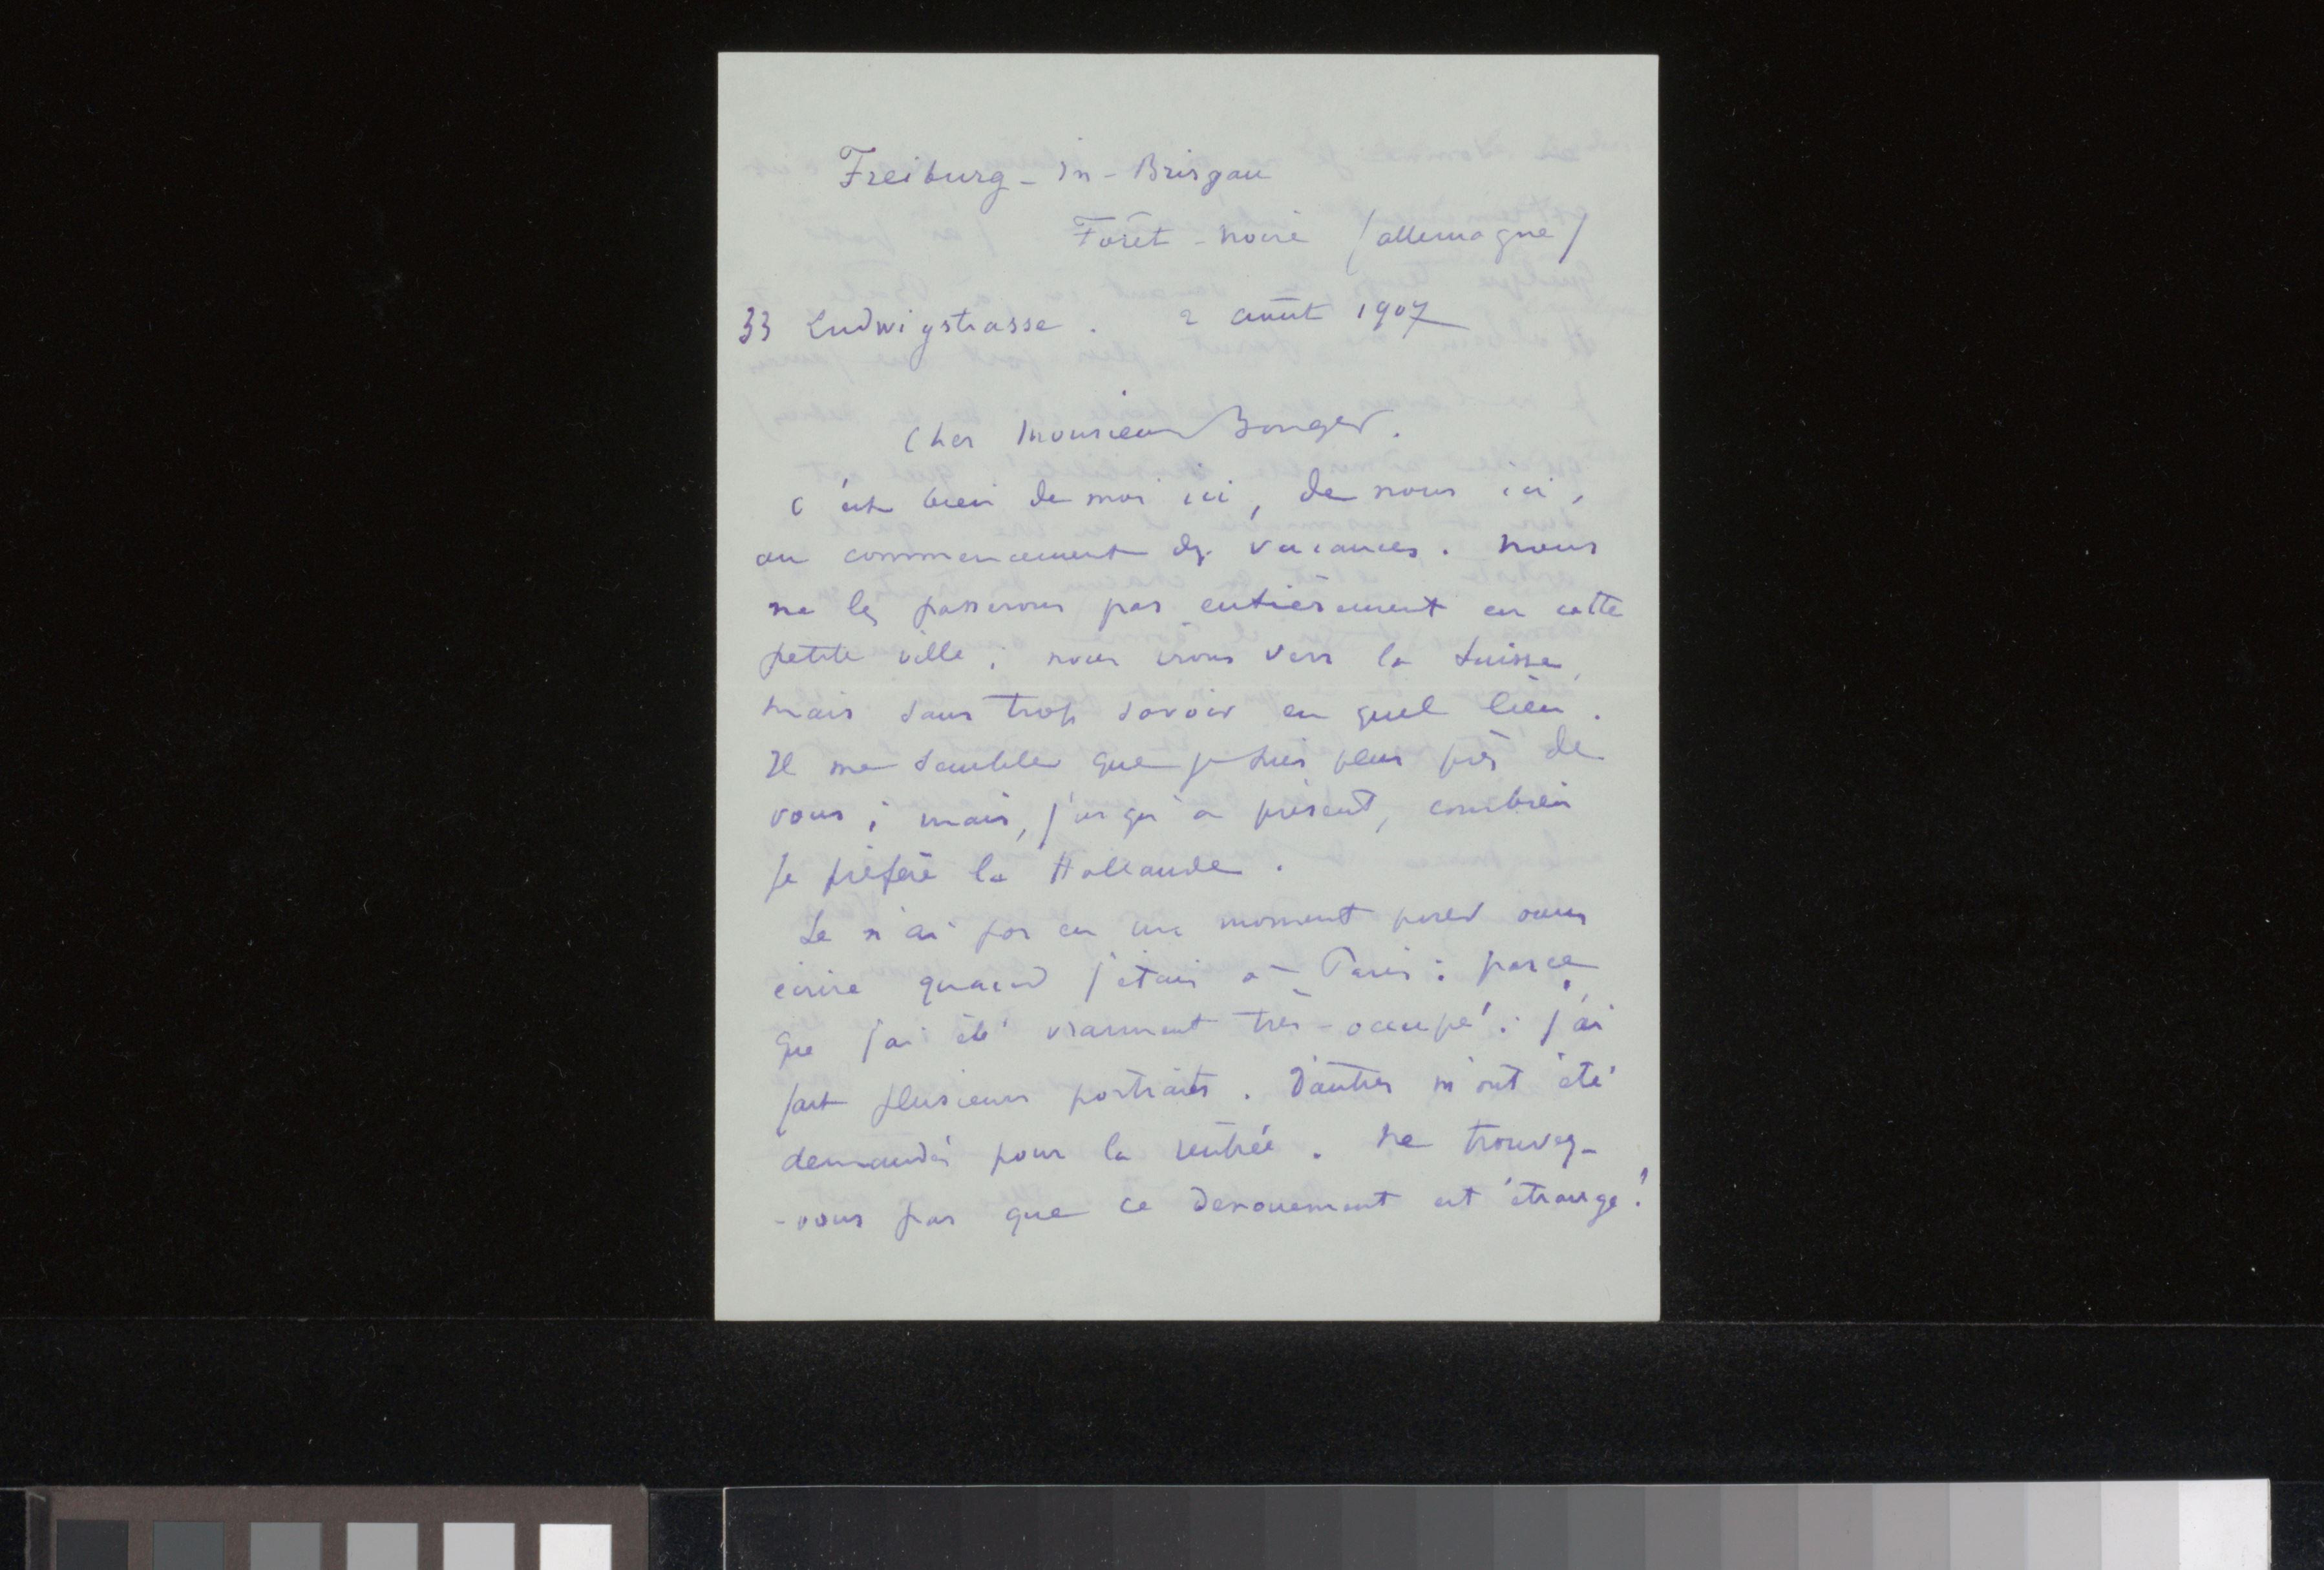 Freiburg-in-Brisgau
Forêt-noire (allemagne)
33 Ludwigstrasse. 2 août 1907
Cher Monsieur Bonger.
C'est bien de moi ici, de nous ici,
au commencement des vacances. Nous
ne les passerons pas entièrement en cette
petite ville; nous irons vers la Suisse,
mais sans trop savoir en quel lieu.
Il me semble que je suis plus près de
vous; mais, jusqu'à présent, combien
je préfère la Hollande.
Je n'ai pas eu un moment pour vous
écrire quand j'étais à Paris: parce
que j'ai été vraiment très-occupé: j'ai
fait plusieurs portraits. D'autres m'ont été
demandés pour la rentrée. Ne trouvez-
-vous pas que ce denouement est étrange!